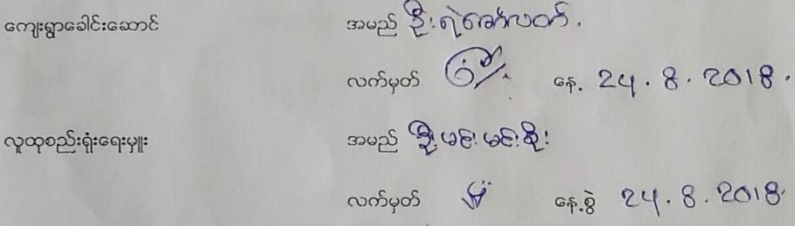 ကျေးရွာခေါင်းဆောင် အမည် ဦးရဲခေါ်လတ်.
လက်မှတ် နေ့. 24.8.2018.
လူထုစည်းရုံးရေးမှူး အမည် ဦးမင်းမင်းစိုး
လက်မှတ် နေ့စွဲ 24.8.2018.